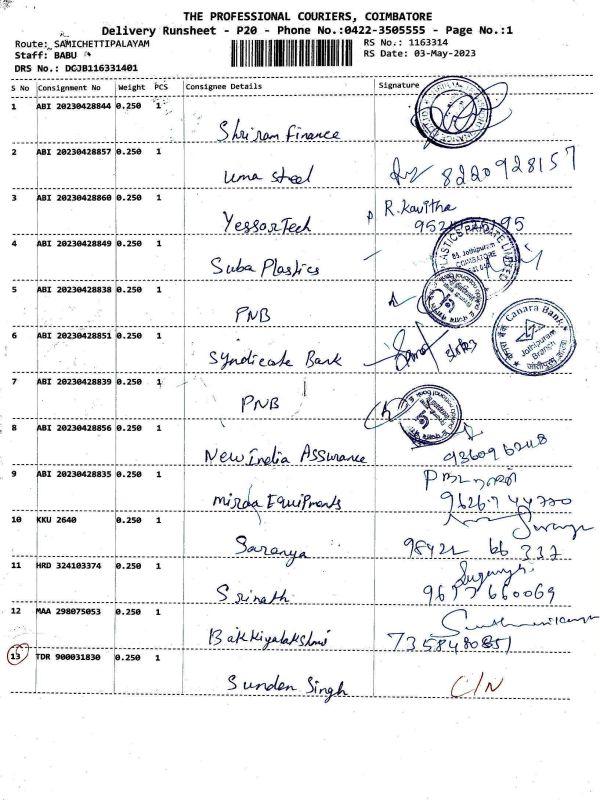 THE PROFESSIONAL COURIERS, COIMBATORE
Delivery Runsheet - P20 - Phone No.:0422-3505555 - Page No.:1
Route: SAMICHETTIPALAYAM
Staff: BABU
DRS No.: DGJB116331401
RS No.: 1163314
RS Date: 03-May-2023
S No Consignment No Weight PCS Consignee Details Signature
1 ABI 20230428844 0.250 1
Shriram Finance
2 ABI 20230428857 0.250 1
Uma steel 8220928157
3 ABI 20230428860 0.250 1 R. Kavitha
YessorTech
4 ABI 20230428849 0.250 1
Suba Plastics
PLASTICS PRIVATE LIMITED
Jothipuram
COIMBATORE
5 ABI 20230428838 0.250 1
PNB
6 ABI 20230428851 0.250 1
Syndicate Bank
Canara Bank
Jothipuram
Branch
7 ABI 20230428839 0.250 1
PNB
8 ABI 20230428856 0.250 1
New India Assurance
9 ABI 20230428835 0.250 1
Equipments
10 KKU 2640 0.250 1
Saranya 98422 66 337
11 HRD 324103374 0.250 1
Srinath 9677660069
12 MAA 298075053 0.250 1
Bakkiyalakshmi 7358480851
13 TDR 900031830 0.250 1
Sunden Singh C/N